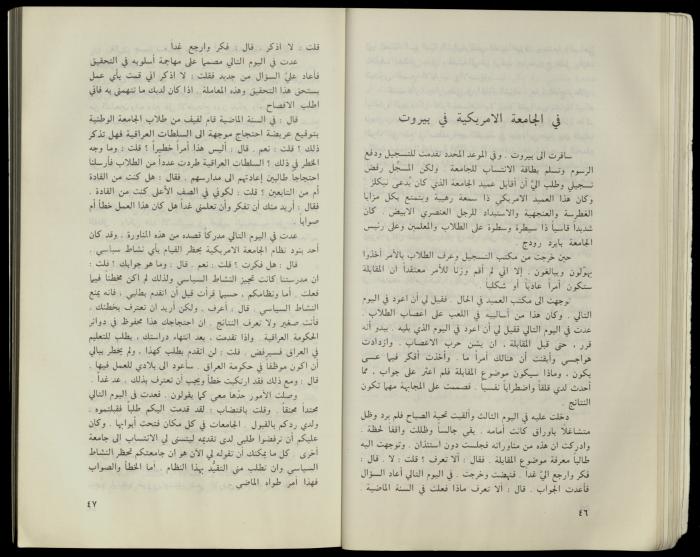 في الجامعة الامريكية في بيروت
سافرت الى بيروت . وفي الموعد المحدد تقدمت للتسجيل ودفع
الرسوم وتسلم بطاقة الانتساب للجامعة . ولكن المسجّل رفض
تسجيلي وطلب اليّ أن أقابل عميد الجامعة الذي كان يُدعى نيكلز .
وكان هذا العميد الامريكي ذا سمعة رهيبة ويتمتع بكل مزايا
الغطرسة والعنجهية والاستبداد للرجل العنصري الابيض . كان
شديداً قاسياً ذا سيطرة وسطوة على الطلاب والمعلمين وعلى رئيس
الجامعة بايرد رودج
حين خرجت من مكتب التسجيل وعرف الطلاب بالأمر أخذوا
يهوّلون ويبالغون . إلا اني لم أقم وزنا للأمر معتقداً ان المقابلة
ستكون أمراً عادياً أو شكلياً .
توجهت الى مكتب العميد في الحال . فقيل لي أن أعود في اليوم
التالي . وكان هذا من أساليبه في اللعب على اعصاب الطلاب .
عدت في اليوم التالي فقيل لي أن أعود في اليوم الذي يليه . يبدو أنه
قرر ، حتى قبل المقابلة ، ان يشن حرب الاعصاب . وازدادت
هواجسي وأيقنت أن هنالك أمراً ما . وأخذت أفكر فيما عسى
يكون ، وماذا سيكون موضوع المقابلة فلم اعثر على جواب ، مما
أحدث لدي قلقاً واضطراباً نفسياً . فصممت على المجابهة مهما تكون
النتائج .
دخلت عليه في اليوم الثالث وألقيت تحية الصباح فلم يرد وظل
متشاغلاً باوراق كانت أمامه . بقي جالساً وظللت واقفا لحظة .
وادركت ان هذه من مناوراته فجلست دون استئذان . وتوجهت اليه
طالباً معرفة موضوع المقابلة . فقال : ألا تعرف ؟ قلت : لا . قال :
فكر وارجع اليّ غداً . فنهضت وخرجت . في اليوم التالي أعاد السؤال
فأعدت الجواب . قال : ألا تعرف ماذا فعلت في السنة الماضية .
٤٦
قلت : لا اذكر . قال : فكر وارجع غداً
عدت في اليوم التالي مصمما على مهاجمة أسلوبه في التحقيق
فأعاد عليّ السؤال من جديد فقلت : لا اذكر اني قمت بأي عمل
يستحق هذا التحقيق وهذه المعاملة . اذا كان لديك ما تتهمني به فاني
اطلب الافصاح
قال : في السنة الماضية قام لفيف من طلاب الجامعة الوطنية
بتوقيع عريضة احتجاج موجهة الى السلطات العراقية فهل تذكر
ذلك ؟ قلت : نعم . قال : أليس هذا أمراً خطيراً ؟ قلت : وما وجه
الخطر في ذلك ؟ السلطات العراقية طردت عدداً من الطلاب فأرسلنا
احتجاجاً طالبين إعادتهم الى مدارسهم . فقال : هل كنت من القادة
أم من التابعين ؟ قلت : لكوني في الصف الأعلى كنت من القادة .
فقال : أريد منك أن تفكر وأن تعلمني غداً هل كان هذا العمل خطأ أم
صوابا
عدت في اليوم التالي مدركاً قصده من هذه المناورة . وقد كان
أحد بنود نظام الجامعة الامريكية يحظر القيام بأي نشاط سياسي .
قال : هل فكرت ؟ قلت : نعم . قال : وما هو جوابك ؟ قلت :
ان مدرستنا كانت تجيز النشاط السياسي ولذلك لم اكن مخطئاً فيما
فعلت . أما ونظامكم ، حسبما قرأت قبل أن اتقدم بطلبي ، فانه يمنع
النشاط السياسي . قال : أعرف . ولكن أريد ان تعترف بخطئك .
فأنت صغير ولا تعرف النتائج . ان احتجاجك هذا محفوظ في دوائر
الحكومة العراقية . واذا تقدمت ، بعد انتهاء دراستك ، بطلب للتعليم
في العراق فسيرفض . قلت : لن اتقدم بطلب كهذا . ولم يخطر ببالي
أن اكون موظفاً في حكومة العراق . سأعود الى بلادي للعمل فيها .
قال : ومع ذلك فقد ارتكبت خطأ ويجب أن تعترف بذلك . عد غداً .
وصلت الأمور حدها معي كما يقولون . فعدت في اليوم التالي
محتداً محنقاً . وقلت باقتضاب : لقد قدمت اليكم طلباً فقبلتموه .
ولدي ردكم بالقبول . الجامعات في كل مكان فتحت أبوابها . وكان
عليكم أن ترفضوا طلبي لدى تقديمه ليتسنى لي الانتساب الى جامعة
أخرى . كل ما يمكنك أن تقوله لي الآن هو ان جامعتكم تحظر النشاط
السياسي وان تطلب مني التقيّد بهذا النظام . أما الخطأ والصواب
فهذا أمر طواه الماضي
٤٧